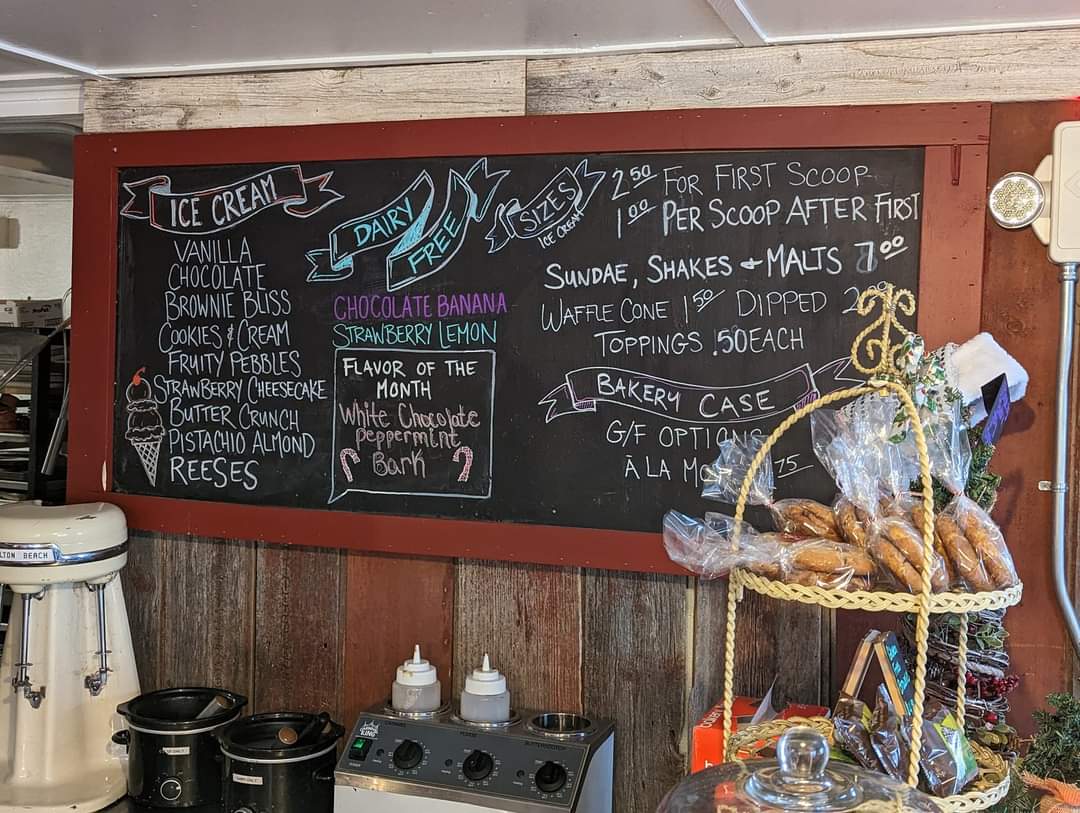 ICE CREAM
VANILLA
CHOCOLATE
BROWNIE BLISS
COOKIES & CREAM
FRUITY PEBBLES
STRAWBERRY CHEESECAKE
BUTTER CRUNCH
PISTACHIO ALMOND
REESES
DAIRY
FREE
CHOCOLATE BANANA
STRAWBERRY LEMON
FLAVOR OF THE
MONTH
White Chocolate
peppermint
Bark
SIZES
ICE CREAM
2.50 FOR FIRST SCOOP
1.00 PER SCOOP AFTER FIRST
SUNDAE, SHAKES & MALTS 7.00
WAFFLE CONE 1.50 DIPPED
TOPPINGS .50 EACH
BAKERY CASE
G/F OPTIONS
À LA
LTON BEACH
KING